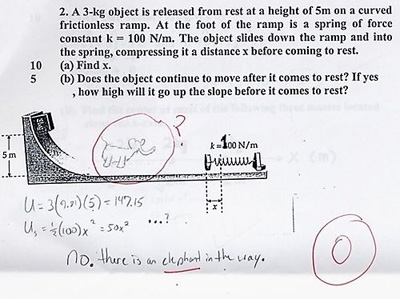 2. A 3-kg object is released from rest at a height of 5m on a curved
frictionless ramp. At the foot of the ramp is a spring of force
constant k = 100 N/m. The object slides down the ramp and into
the spring, compressing it a distance x before coming to rest.
10 (a) Find x.
5 (b) Does the object continue to move after it comes to rest? If yes
, how high will it go up the slope before it comes to rest?
?
k = 100 N/m
5 m
x
U = 3(9.81)(5) = 147.15
Us = ½(100)x² = 50x² ...?
No. there is an elephant in the way.
0